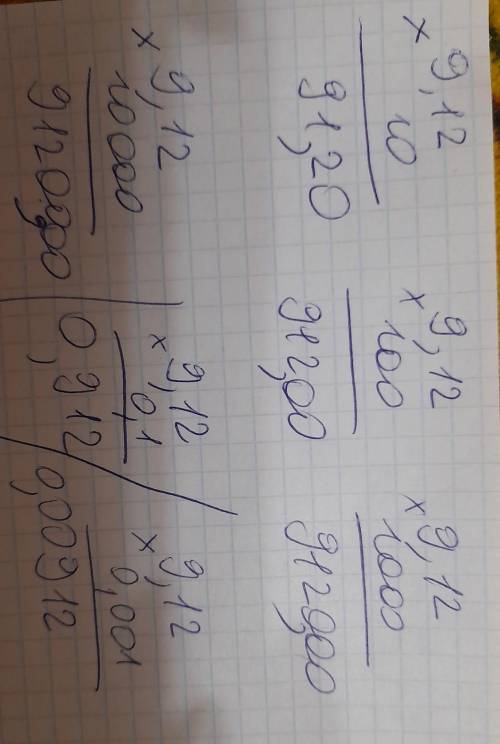 × 9,12
10
91,20
× 9,12
100
912,00
× 9,12
1000
9120,00
× 9,12
10000
× 9,12
0,1
0,912
× 9,12
0,001
0,00912